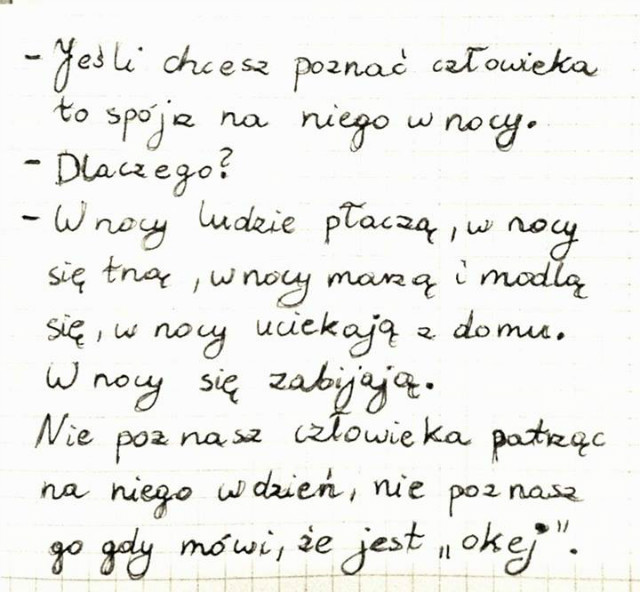 - Jeśli chcesz poznać człowieka
to spójrz na niego w nocy.
- Dlaczego?
- W nocy ludzie płaczą, w nocy
się tną, w nocy marzą i modlą
się, w nocy uciekają z domu.
W nocy się zabijają.
Nie poznasz człowieka patrząc
na niego w dzień, nie poznasz
go gdy mówi, że jest „okej”.